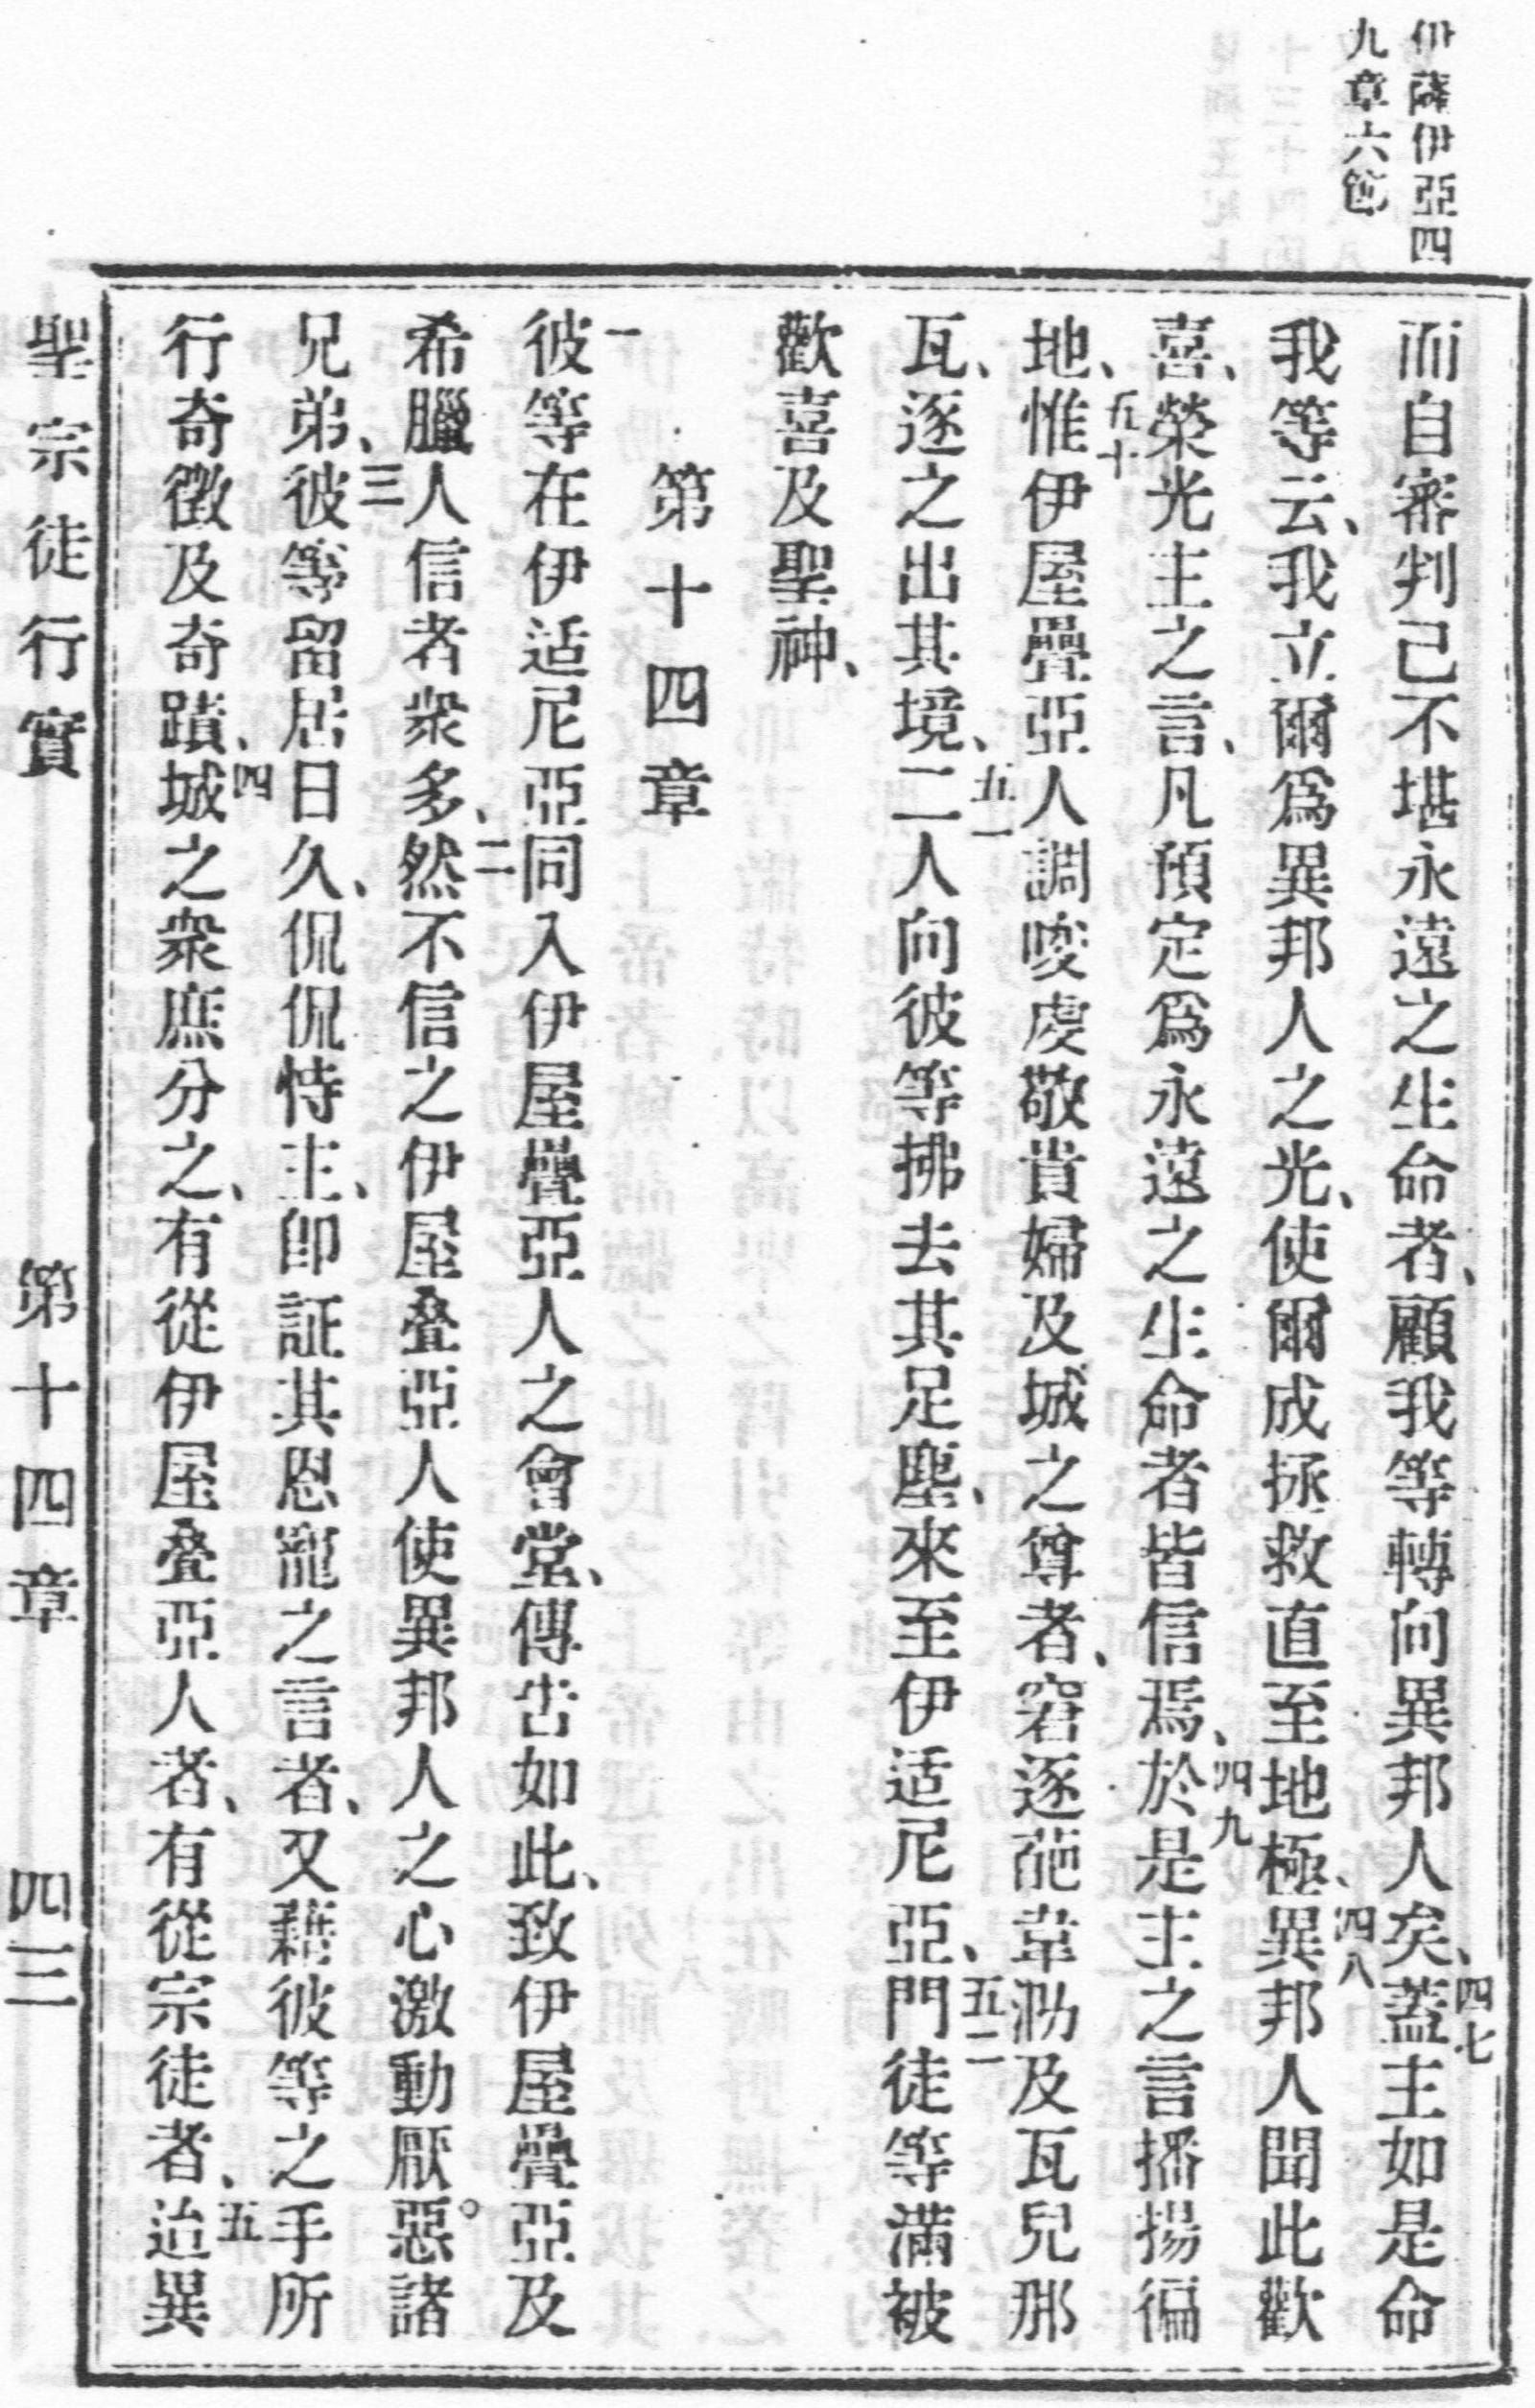 伊薩伊亞四
九章六節
而自審判己不堪永遠之生命者、顧我等轉向異邦人矣、四七蓋主如是命
我等云、我立爾爲異邦人之光、使爾成拯救直至地極、四八異邦人聞此歡
喜、榮光主之言、凡預定爲永遠之生命者皆信焉、四九於是主之言播揚徧
地、五十惟伊屋疊亞人調唆虔敬貴婦及城之尊者、窘逐葩韋泐及瓦兒那
瓦、逐之出其境、五一二人向彼等拂去其足塵、來至伊适尼亞、五二門徒等滿被
歡喜及聖神、
第十四章
一彼等在伊适尼亞同入伊屋疊亞人之會堂、傳吿如此、致伊屋疊亞及
希臘人信者衆多、二然不信之伊屋叠亞人使異邦人之心激動厭惡。諸
兄弟、三彼等留居日久、侃侃恃主、卽証其恩寵之言者、又藉彼等之手所
行奇徵及奇蹟、四城之衆庶分之、有從伊屋叠亞人者、有從宗徒者、五迨異
聖宗徒行實　第十四章　四三